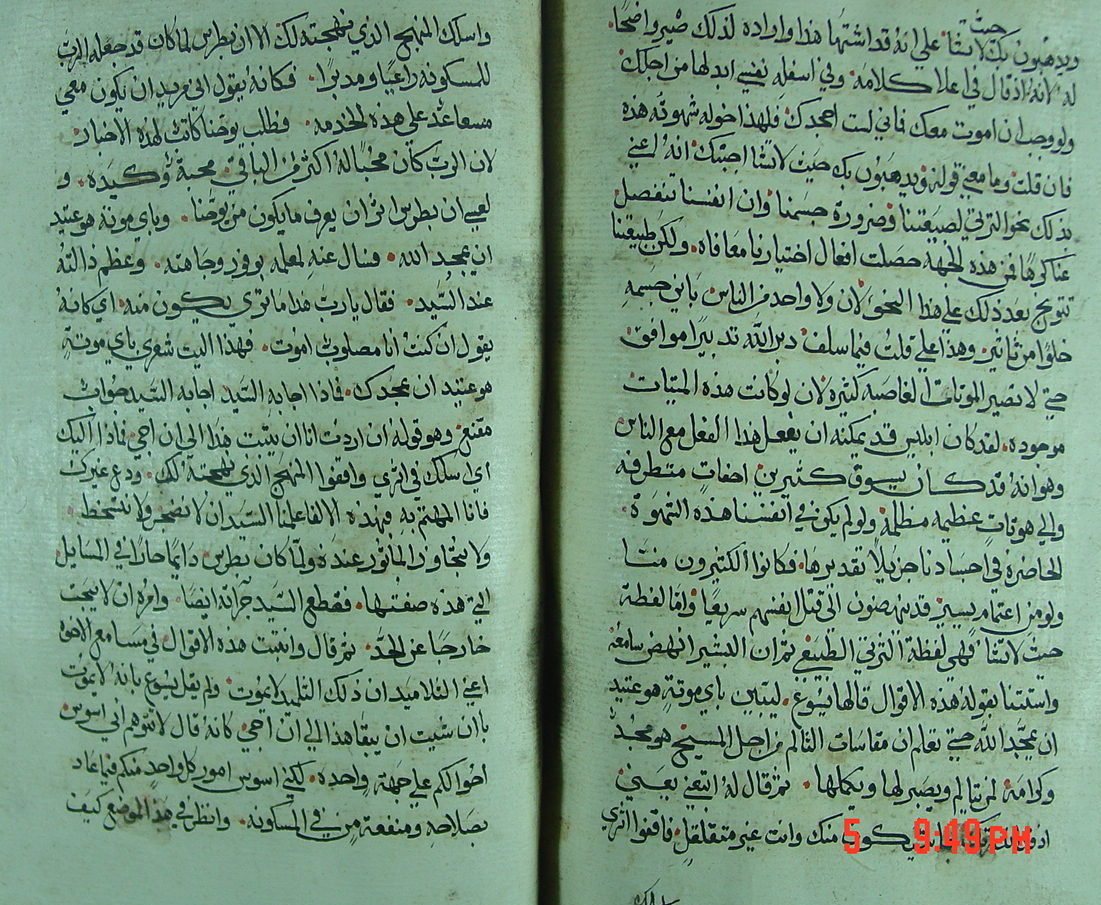 حيث
ويذهبون بك لا تشا علي انه قد اشتهاها هذا واراده لذلك صير واضحًا
له لانه اذ قال في اعلا كلامه وفي اسفله نفسي ابدلها من اجلك
ولو وجب ان اموت معك فاني لست اجحدك فلهذا خوله شهوته هذه
فان قلت وما معني قوله ويذهبون بك حيث لا تشا اجبتك انه اعني
بذلك نحو الترتي لصيغتنا وضرورة جسمنا وان انفسنا تنفصل
عنا كرها فمن هذه الجهة حصلت افعال اختيارنا معافاه ولكن طبيعتنا
بعد ذلك علي هذا النحو لان ولا واحد من الناس باين جسمه
خلوا من تاثير وهذا علي ما قلت فيما سلف دبر الله تدبيرا موافق
حتي لا تصير الموتات الغاصبه كثيره لان لو كانت هذه الميتات
موجوده لقد كان ابليس قد يمكنه ان يفعل هذا الفعل مع الناس
وهو انه قد كان يسوق كثيرين اجفات متطرفه
والي هوتات عظيمه مظلمه ولو لم يكن في انفسنا هذه الشهوة
الحاضره في اجسادنا جزيلا تقديرها فكانوا الكثيرون منا
ولو من اغتمام يسير قد ينهضون الي قتل انفسهم سريعا واما لفظة
حيث لا تشا فهي لفظة الترتي الطبيعي ثم ان البشير انهض سامعه
واستتنا بقوله هذه الاقوال قالها يسوع ليتبين باي موتة هو عتيد
ان يمجد الله حتي تعلم ان مقاسات التالم من اجل المسيح هو مجد
وكرامة لمن يتالم ويصبر لها ويكملها ثم قال له اتبعني يعني
منك وانت غير متقلقل فاقفوا اثري
واسلك المنهج الذي نهجته لك الا ان بطرس لما كان قد جعله الرب
للمسكونه راعيا ومدبرا فكانه يقول اني مريد ان يكون معي
مساعدي علي هذه الخدمه فطلب يوحنا كانت لهذه الاضمار
لان الرب كان محبا له اكثر من الباقي محبة وكيده و
لعي ان بطرس اثر ان يعرف ما يكون من يوحنا وباي موتة هو عتيد
ان يمجد الله فسال عنه لمعلمه بوفور وجاهته وعظم دالته
عند السيد فقال يارب هذا ما تري يكون منه اي كانه
يقول ان كنت انا مصلوب اموت فهذا اليت شعري باي موتةٍ
هو عتيد ان يمجدك فماذا اجابه السيد اجابه السيد جواب
مقنع وهو قوله ان اردت انا ان يثبت هذا الي ان اجي فماذا اليك
اي سلك في اثري واقفوا المنهج الذي نهجته لك ودع غيرك
فانا المهتم به فبهذه الالفا علمنا السيد ان لا نضجر ولا نتسخط
ولا نتجاوز الماثور عنده ولما كان بطرس دايما حارا في المسايل
التي هذه صفتها فقطع السيد حرارته ايضا وامره ان لا يبحث
خارجا عن الحد ثم قال وانبثت هذه الاقوال في مسامع الاخوه
اعني التلاميد ان ذلك التلميد لا يموت ولم يقل يسوع بانه لا يموت
بل ان شيت ان يبقا هذا الي ان اجي كانه قال لا تتوهم اني اسوس
احوالكم علي جهة واحده لكني اسوس امور كل واحد منكم فيما عاد
بصلاحه ومنفعة من في المسكونه وانظر في هذا الموضع كيف
5 9:49 PM